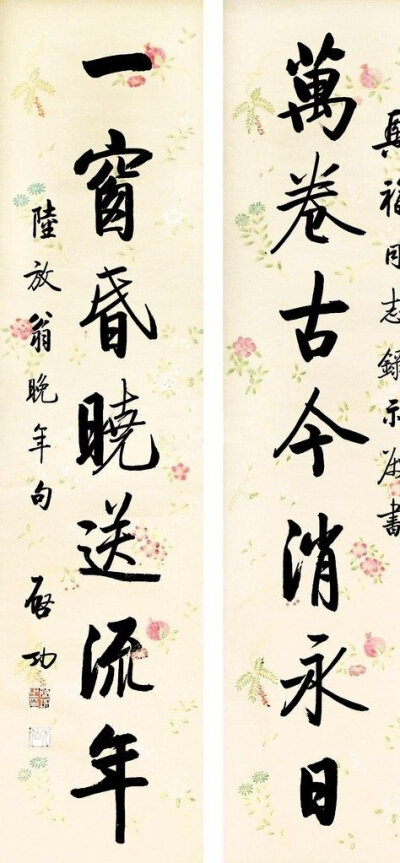 萬卷古今消永日
福同志
一窗昏曉送流年
陸放翁晚年句
啓功